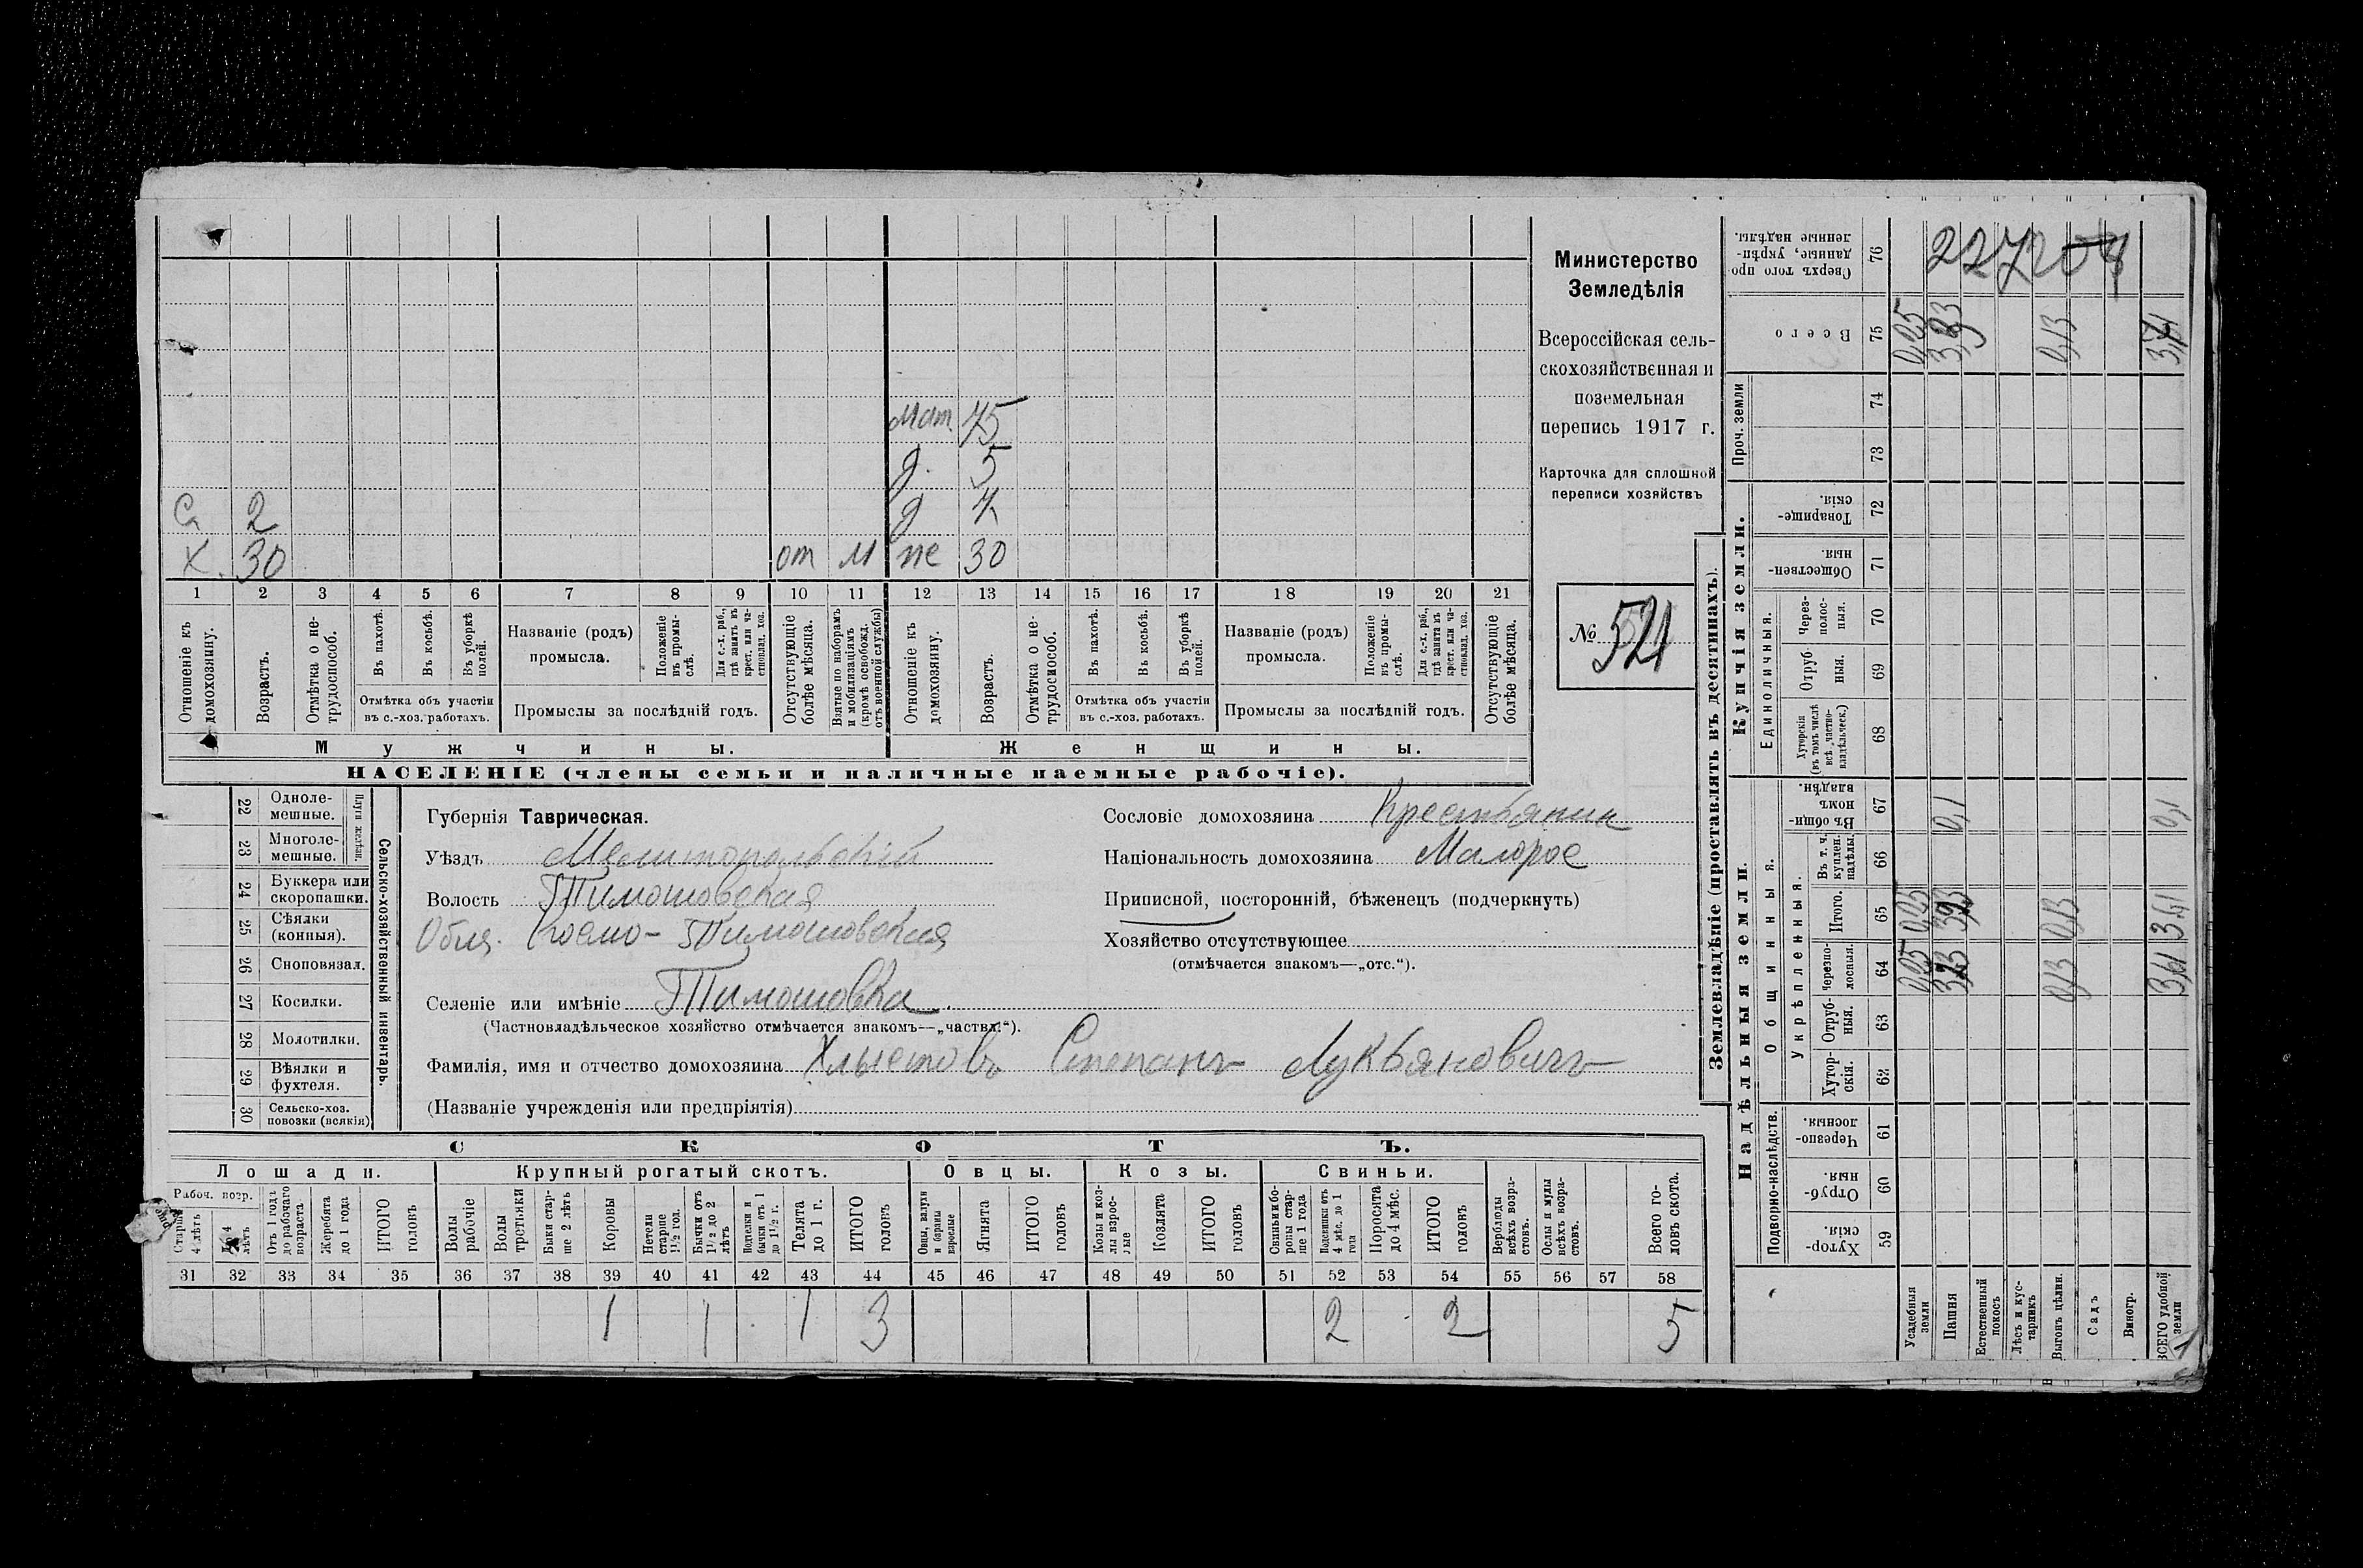 Мат. 75
д. 5
д 7
Сн 2
Х. 30 от м же 30
1 2 3 4 5 6 7 8 9 10 11 12 13 14 15 16 17 18 19 20 21
Отношеніе къ домохозяину.
Возрастъ.
Отмѣтка о не-трудоспособ.
Въ пахотѣ.
Въ косьбѣ.
Въ уборкѣ полей.
Отмѣтка объ участіи
въ с.-хоз. работахъ.
Названіе (родъ)
промысла.
Положеніе въ промы-слѣ.
Для с.-х. раб., гдѣ занятъ въ крест. или ча-стновлад. хоз.
Промыслы за послѣдній годъ.
Отсутствующіе болѣе мѣсяца.
Взятые по наборамъ и мобилизаціямъ (кромѣ освобожд. отъ военной службы)
Отношеніе къ домохозяину.
Возрастъ.
Отмѣтка о не-трудоспособ.
Въ пахотѣ.
Въ косьбѣ.
Въ уборкѣ полей.
Отмѣтка объ участіи
въ с.-хоз. работахъ.
Названіе (родъ)
промысла.
Положеніе въ промы-слѣ.
Для с.-х. раб., гдѣ занята въ крест. или ча-стновлад. хоз.
Промыслы за послѣдній годъ.
Отсутствующіе болѣе мѣсяца.
Мужчины.
Женщины.
НАСЕЛЕНІЕ (члены семьи и наличные наемные рабочіе).
Министерство
Земледѣлія
Всероссійская сель-
скохозяйственная и
поземельная
перепись 1917 г.
Карточка для сплошной
переписи хозяйствъ
№ 521
22 Одноле-мешные.
23 Многоле-мешные.
Плуги желѣзн.
24 Буккера или скоропашки.
25 Сѣялки (конныя).
26 Сноповязал.
27 Косилки.
28 Молотилки.
29 Вѣялки и фухтеля.
30 Сельско-хоз. повозки (всякія)
Сельско-хозяйственный инвентарь.
Губернія Таврическая.
Уѣздъ Мелитопольскій
Волость Тимошовская
Тимошовския
Селеніе или имѣніе Тимошовка
(Частновладѣльческое хозяйство отмѣчается знакомъ—„частвл.“).
Фамилія, имя и отчество домохозяина Хлыстовъ Степанъ Лукьяновичъ
(Названіе учрежденія или предпріятія)
Сословіе домохозяина Крестьянин
Національность домохозяина Малорос
Приписной, посторонній, бѣженецъ (подчеркнуть)
Хозяйство отсутствующее
(отмѣчается знакомъ—„отс.“).
СКОТЪ.
Лошади. Крупный рогатый скотъ. Овцы. Козы. Свиньи.
Рабоч. возр.
Старше 4 лѣтъ
До 4 лѣтъ
Отъ 1 года до рабочаго возраста
Жеребята до 1 года
ИТОГО головъ
Волы рабочіе
Волы третьяки
Быки стар-ше 2 лѣтъ
Коровы
Нетели старше 1½ год.
Бычки отъ 1½ до 2 лѣтъ
Подтелки и бычки отъ 1 до 1½ г.
Телята до 1 г.
ИТОГО головъ
Овцы, валухи и бараны взрослые
Ягнята
ИТОГО головъ
Козы и коз-лы взрос-лые
Козлята
ИТОГО головъ
Свиньи и бо-ровы стар-ше 1 года
Подсвинки отъ 4 мѣс. до 1 года
Поросята до 4 мѣс.
ИТОГО головъ
Верблюды всѣхъ возра-стовъ.
Ослы и мулы всѣхъ возра-стовъ.
Всего го-ловъ скота.
31 32 33 34 35 36 37 38 39 40 41 42 43 44 45 46 47 48 49 50 51 52 53 54 55 56 57 58
1 1 1 3 2 2 5
Землевладѣніе (проставлять въ десятинахъ).
Надѣльныя земли.
Купчія земли.
Проч. земли
Подворно-наслѣдств.
Общинныя.
Укрѣпленныя.
Единоличныя.
Хутор-скія. 59
Отруб-ныя. 60
Черезпо-лосныя. 61
Хутор-скія. 62
Отруб-ныя. 63
Черезпо-лосныя. 64
Итого. 65
Въ т. ч. куплен. надѣлы. 66
Въ общин-номъ владѣн. 67
Хуторскія (въ томъ числѣ всѣ частно-владѣльческ.) 68
Отруб-ныя. 69
Через-полос-ныя. 70
Обществен-ныя. 71
Товарище-скія. 72
73
74
Всего 75
Сверхъ того про-данные, укрѣп-ленные надѣлы. 76
Усадебныя земли
Пашня 0,1
Естественный покосъ
Лѣсъ и ку-старникъ
Выгонъ цѣлин. 0,13 0,13 0,13
Садъ
Виногр.
ВСЕГО удобной земли 3,61 3,61 0,1